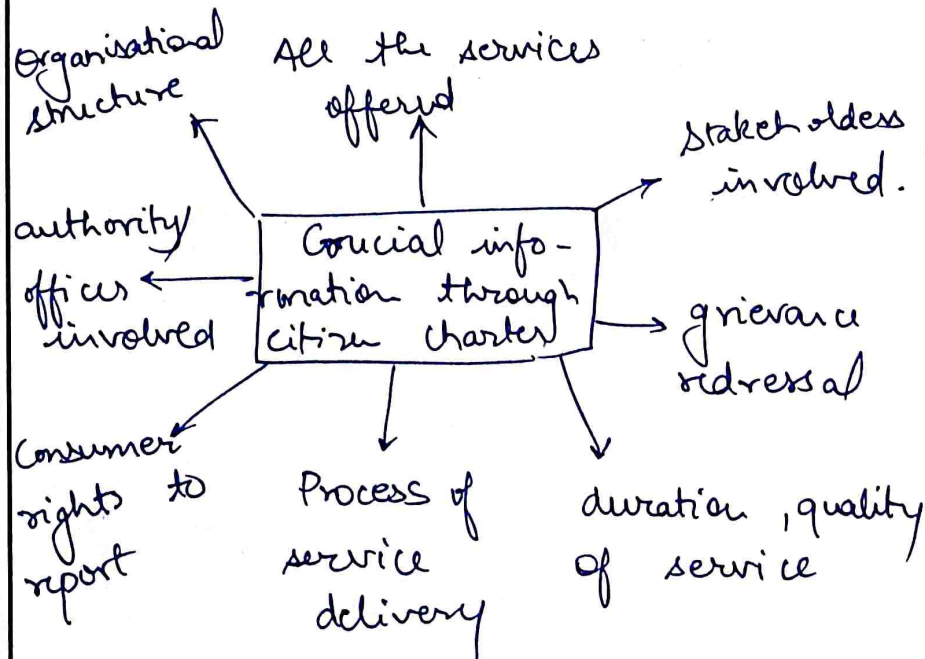 Organisational
structure
All the services
offered
stakeholdess
involved.
authority
offices
involved
Crucial info-
rmation through
citizen charter
grievance
redressal
Consumer
rights to
report
Process of
service
delivery
duration, quality
of service